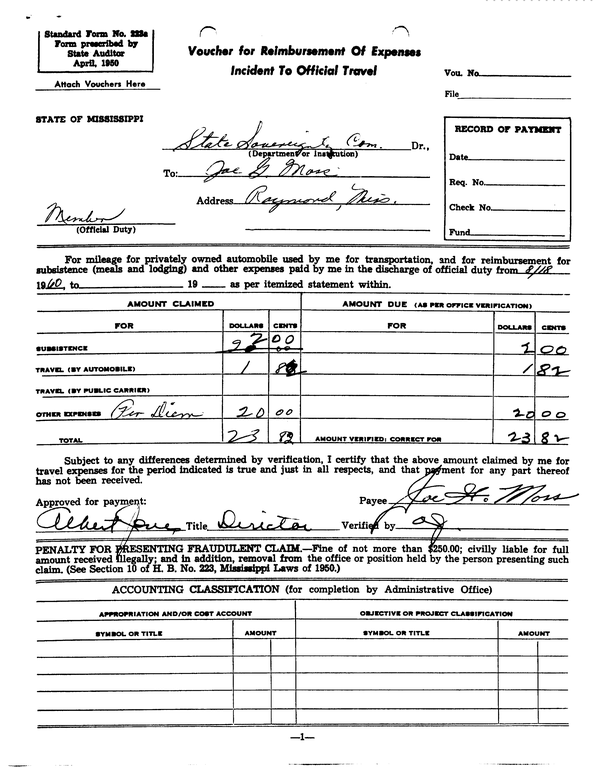 Standard Form No. 223a
Form prescribed by
State Auditor
April, 1950
Attach Vouchers Here
Voucher for Reimbursement Of Expenses
Incident To Official Travel
Vou. No.
File
STATE OF MISSISSIPPI
RECORD OF PAYMENT
State Sovereignty Com. Dr.,
(Department or Institution)
Date
To: Joe G. Moss
Req. No.
Address Raymond, Miss.
Check No.
Member
(Official Duty)
Fund
For mileage for privately owned automobile used by me for transportation, and for reimbursement for
subsistence (meals and lodging) and other expenses paid by me in the discharge of official duty from 8/18
1960, to 19 as per itemized statement within.
AMOUNT CLAIMED AMOUNT DUE (AS PER OFFICE VERIFICATION)
FOR DOLLARS CENTS FOR DOLLARS CENTS
SUBSISTENCE 2 00 2 00
TRAVEL (BY AUTOMOBILE) 1 82 1 82
TRAVEL (BY PUBLIC CARRIER)
OTHER EXPENSES Per Diem 20 00 20 00
TOTAL 23 82 AMOUNT VERIFIED: CORRECT FOR 23 82
Subject to any differences determined by verification, I certify that the above amount claimed by me for
travel expenses for the period indicated is true and just in all respects, and that payment for any part thereof
has not been received.
Approved for payment: Payee Joe H. Moss
Albert Jones Title Director Verified by aj
PENALTY FOR PRESENTING FRAUDULENT CLAIM.—Fine of not more than $250.00; civilly liable for full
amount received illegally; and in addition, removal from the office or position held by the person presenting such
claim. (See Section 10 of H. B. No. 223, Mississippi Laws of 1950.)
ACCOUNTING CLASSIFICATION (for completion by Administrative Office)
APPROPRIATION AND/OR COST ACCOUNT OBJECTIVE OR PROJECT CLASSIFICATION
SYMBOL OR TITLE AMOUNT SYMBOL OR TITLE AMOUNT
—1—